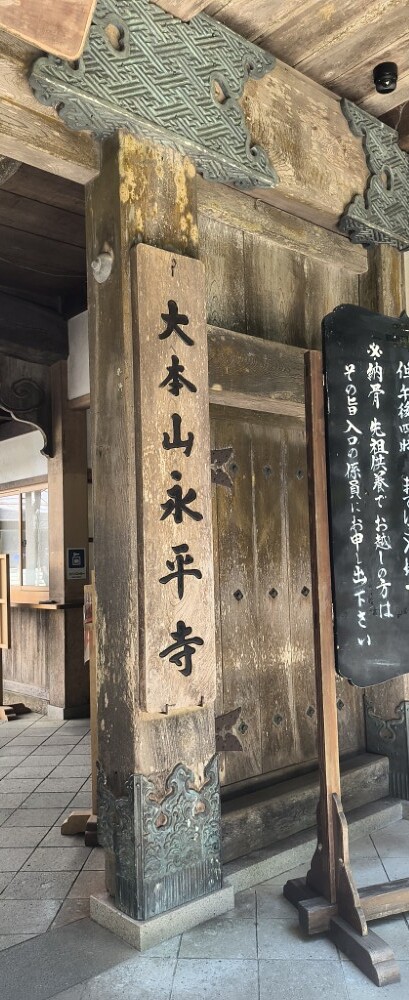 大本山永平寺
※納骨 先祖供養でお越しの方は
その旨入口の係員にお申し出下さい